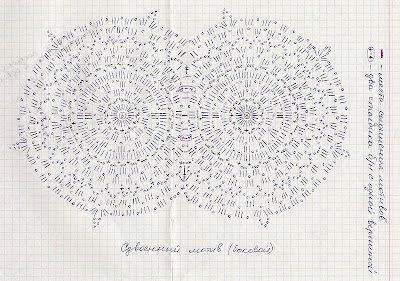 - место соединения мотивов
- два столбика б/н с одной вершиной
Сдвоенный мотив (боковой)